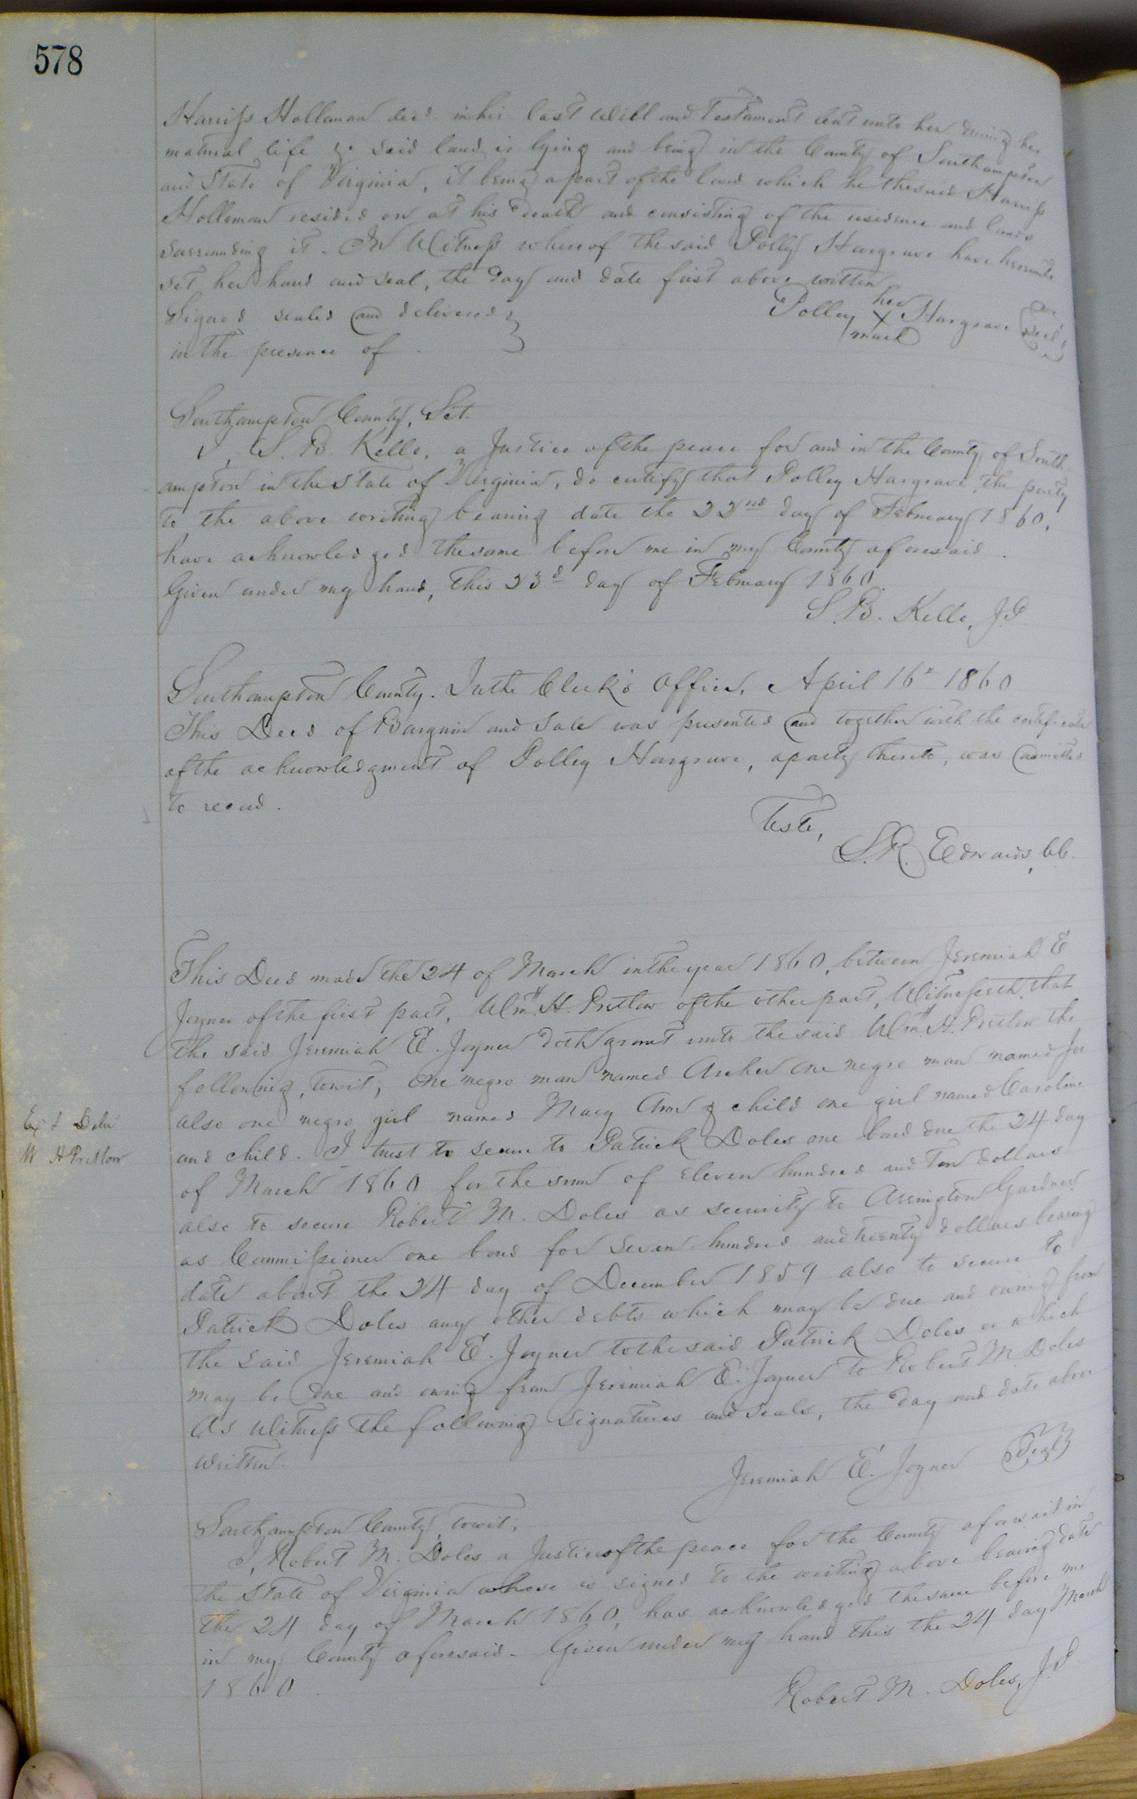 578
Harriss Holleman decd. in his last Will and Testament lent unto her during her
natural life &c said land is lying and being in the County of Southampton
and State of Virginia, it being a part of the land which he the said Harriss
Holleman resided on at his death and consisting of the residence and lands
surrounding it. In Witness whereof the said Polly Hargrave have hereunto
set her hand and seal, the day and date first above written
Signed sealed and delivered
in the presence of
her
Polley X Hargrave
mark
Seal
Southampton County, Sct.
I, S. B. Kello, a Justice of the peace for and in the County of South
ampton in the State of Virginia, do certify that Polley Hargrave, the party
to the above writing bearing date the 22nd day of February 1860,
have acknowledged the same before me in my County aforesaid.
Given under my hand, this 23d day of February 1860.
S. B. Kello, J.P.
Southampton County. In the Clerk's Office, April 16th 1860
This Deed of Bargain and Sale was presented and together with the certificate
of the acknowledgment of Polley Hargrave, a party thereto, was admitted
to record.
Teste,
L. R. Edwards, CC.
This Deed made the 24 of March in the year 1860, between Jeremiah E
Joyner of the first part, Wm H. Pretlow of the other part, Witnesseth, that
the said Jeremiah E. Joyner doth grant unto the said Wm H. Pretlow the
following, towit, One negro man named Archer One negro man named Joe
also one negro girl named Mary Ann & child one girl named Caroline
and child. I trust to secure to Patrick Doles one bond due the 24 day
Ex d Deld
W H Pretlow
of March 1860 for the sum of Eleven hundred and Ten dollars
also to secure Robert M. Doles as security to Arrington Gardner
as Commissioner one bond for Seven hundred and twenty dollars bearing
date about the 24 day of December 1859 also to secure to
Patrick Doles any other debts which may be due and owing from
the said Jeremiah E. Joyner to the said Patrick Doles or which
may be due and owing from Jeremiah E. Joyner to Robert M Doles
As Witness the following signatures and seals, the day and date above
written.
Jeremiah E. Joyner Seal
Southampton County, towit,
I, Robert M. Doles a Justice of the peace for the County aforesaid in
the State of Virginia whose is signed to the writing above bearing date
the 24 day of March 1860, has acknowledged the same before me
in my County aforesaid. Given under my hand this the 24 day March
1860.
Robert M. Doles, J.P.